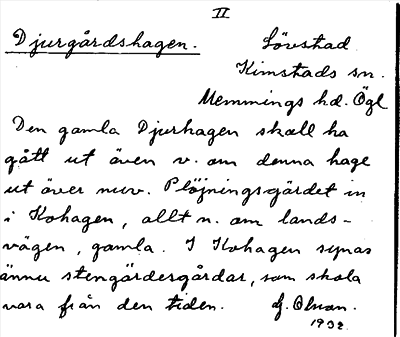 II
Djurgårdshagen. Lövstad
Kimstads sn.
Memmings hd. Ögl
Den gamla Djurhagen skall ha
gått ut även v. om denna hage
ut över nuv. Plöjningsgärdet in
i Kohagen, allt n. om lands-
vägen, gamla. I Kohagen synas
ännu stengärdesgårdar, som skola
vara från den tiden. G. Olson.
1932.